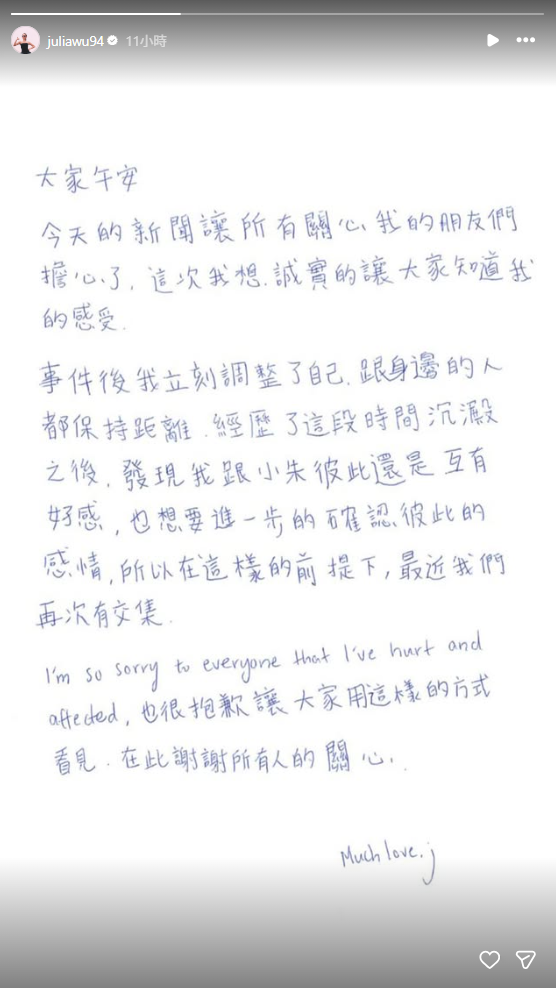 juliawu94 11小時
大家午安
今天的新聞讓所有關心我的朋友們
擔心了, 這次我想.誠實的讓大家知道我
的感受.
事件後我立刻調整了自己.跟身邊的人
都保持距離.經歷了這段時間沉澱
之後,發現我跟小朱彼此還是互有
好感,也想要進一步的確認彼此的
感情,所以在這樣的前提下,最近我們
再次有交集.
I'm so sorry to everyone that I've hurt and
affected, 也很抱歉讓大家用這樣的方式
看見.在此謝謝所有人的關心.
Much love. j